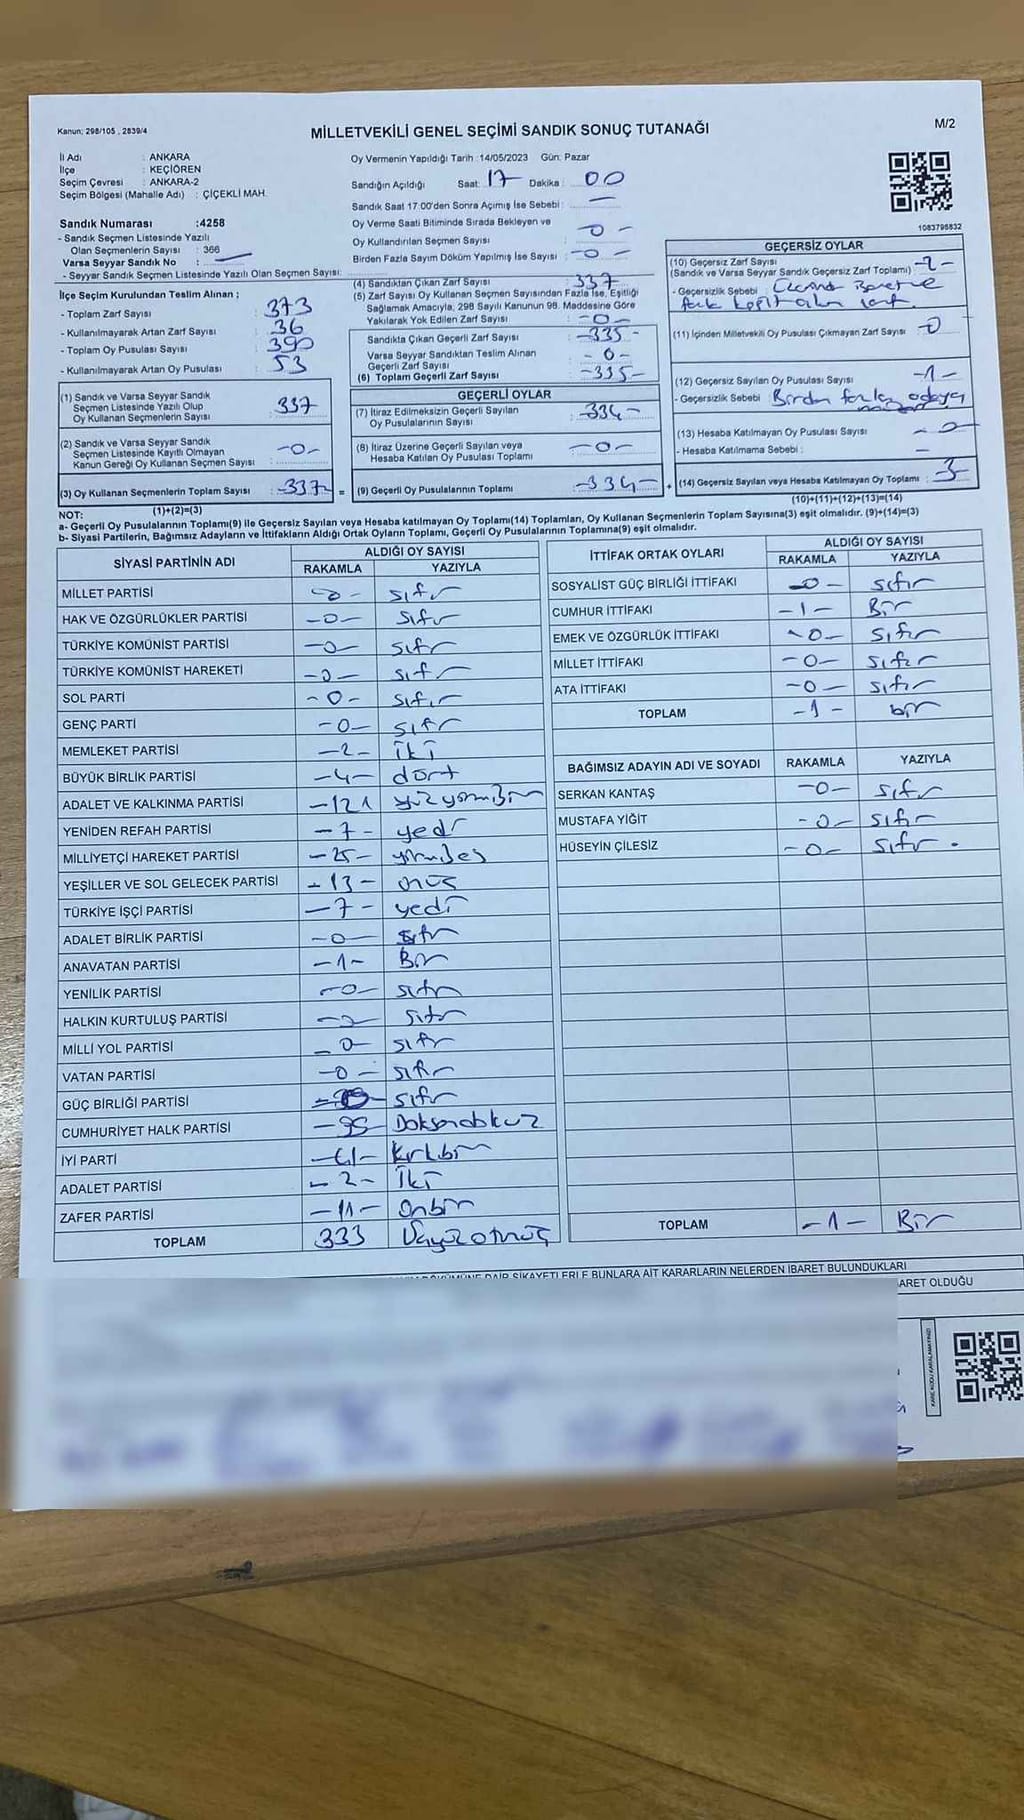 Kanun; 298/105 , 2839/4
MİLLETVEKİLİ GENEL SEÇİMİ SANDIK SONUÇ TUTANAĞI
M/2
İl Adı : ANKARA
İlçe : KEÇİÖREN
Seçim Çevresi : ANKARA-2
Seçim Bölgesi (Mahalle Adı) : ÇİÇEKLİ MAH.
Oy Vermenin Yapıldığı Tarih :14/05/2023 Gün: Pazar
Sandığın Açıldığı Saat: 17 Dakika : 00
Sandık Saat 17:00'den Sonra Açımış İse Sebebi : —
Sandık Numarası :4258
- Sandık Seçmen Listesinde Yazılı
Olan Seçmenlerin Sayısı : 366
Varsa Seyyar Sandık No : —
- Seyyar Sandık Seçmen Listesinde Yazılı Olan Seçmen Sayısı:
Oy Verme Saati Bitiminde Sırada Bekleyen ve
Oy Kullandırılan Seçmen Sayısı -0-
Birden Fazla Sayım Döküm Yapılmış İse Sayısı : -0-
1083796832
İlçe Seçim Kurulundan Teslim Alınan ;
- Toplam Zarf Sayısı : 373
- Kullanılmayarak Artan Zarf Sayısı : 36
- Toplam Oy Pusulası Sayısı : 390
- Kullanılmayarak Artan Oy Pusulası : 53
(1) Sandık ve Varsa Seyyar Sandık
Seçmen Listesinde Yazılı Olup
Oy Kullanan Seçmenlerin Sayısı : 337
(2) Sandık ve Varsa Seyyar Sandık
Seçmen Listesinde Kayıtlı Olmayan
Kanun Gereği Oy Kullanan Seçmen Sayısı : -0-
(3) Oy Kullanan Seçmenlerin Toplam Sayısı : -337-
(1)+(2)=(3)
(4) Sandıktan Çıkan Zarf Sayısı : 337
(5) Zarf Sayısı Oy Kullanan Seçmen Sayısından Fazla İse, Eşitliği
Sağlamak Amacıyla, 298 Sayılı Kanunun 98. Maddesine Göre
Yakılarak Yok Edilen Zarf Sayısı : -0-
Sandıkta Çıkan Geçerli Zarf Sayısı : -335-
Varsa Seyyar Sandıktan Teslim Alınan
Geçerli Zarf Sayısı : -0-
(6) Toplam Geçerli Zarf Sayısı : -335-
GEÇERLİ OYLAR
(7) İtiraz Edilmeksizin Geçerli Sayılan
Oy Pusulalarının Sayısı : -334-
(8) İtiraz Üzerine Geçerli Sayılan veya
Hesaba Katılan Oy Pusulası Toplamı : -0-
= (9) Geçerli Oy Pusulalarının Toplamı : -334- +
GEÇERSİZ OYLAR
(10) Geçersiz Zarf Sayısı
(Sandık ve Varsa Seyyar Sandık Geçersiz Zarf Toplamı) -2-
- Geçersizlik Sebebi :
(11) İçinden Milletvekili Oy Pusulası Çıkmayan Zarf Sayısı : -0
(12) Geçersiz Sayılan Oy Pusulası Sayısı : -1-
- Geçersizlik Sebebi : Birden fazla adaya
(13) Hesaba Katılmayan Oy Pusulası Sayısı : -0-
- Hesaba Katılmama Sebebi : —
(14) Geçersiz Sayılan veya Hesaba Katılmayan Oy Toplamı : -3-
(10)+(11)+(12)+(13)=(14)
NOT:
a- Geçerli Oy Pusulalarının Toplamı(9) ile Geçersiz Sayılan veya Hesaba katılmayan Oy Toplamı(14) Toplamları, Oy Kullanan Seçmenlerin Toplam Sayısına(3) eşit olmalıdır. (9)+(14)=(3)
b- Siyasi Partilerin, Bağımsız Adayların ve İttifakların Aldığı Ortak Oyların Toplamı, Geçerli Oy Pusulalarının Toplamına(9) eşit olmalıdır.
SİYASİ PARTİNİN ADI ALDIĞI OY SAYISI
RAKAMLA YAZIYLA
MİLLET PARTİSİ -0- sıfır
HAK VE ÖZGÜRLÜKLER PARTİSİ -0- sıfır
TÜRKİYE KOMÜNİST PARTİSİ -0- sıfır
TÜRKİYE KOMÜNİST HAREKETİ -0- sıfır
SOL PARTİ -0- sıfır
GENÇ PARTİ -0- sıfır
MEMLEKET PARTİSİ -2- iki
BÜYÜK BİRLİK PARTİSİ -4- dört
ADALET VE KALKINMA PARTİSİ -121 yüzyirmibir
YENİDEN REFAH PARTİSİ -7- yedi
MİLLİYETÇİ HAREKET PARTİSİ -25- yirmibeş
YEŞİLLER VE SOL GELECEK PARTİSİ -13- onüç
TÜRKİYE İŞÇİ PARTİSİ -7- yedi
ADALET BİRLİK PARTİSİ -0- sıfır
ANAVATAN PARTİSİ -1- Bir
YENİLİK PARTİSİ -0- sıfır
HALKIN KURTULUŞ PARTİSİ -0- sıfır
MİLLİ YOL PARTİSİ -0- sıfır
VATAN PARTİSİ -0- sıfır
GÜÇ BİRLİĞİ PARTİSİ sıfır
CUMHURİYET HALK PARTİSİ -99- Doksandokuz
İYİ PARTİ -41- Kırkbir
ADALET PARTİSİ -2- İki
ZAFER PARTİSİ -11- Onbir
TOPLAM 333 Üçyüzotuzüç
İTTİFAK ORTAK OYLARI ALDIĞI OY SAYISI
RAKAMLA YAZIYLA
SOSYALİST GÜÇ BİRLİĞİ İTTİFAKI -0- sıfır
CUMHUR İTTİFAKI -1- Bir
EMEK VE ÖZGÜRLÜK İTTİFAKI -0- sıfır
MİLLET İTTİFAKI -0- sıfır
ATA İTTİFAKI -0- sıfır
TOPLAM -1- bir
BAĞIMSIZ ADAYIN ADI VE SOYADI RAKAMLA YAZIYLA
SERKAN KANTAŞ -0- sıfır
MUSTAFA YİĞİT -0- sıfır
HÜSEYİN ÇİLESİZ -0- sıfır .
TOPLAM -1- Bir
DAİR ŞİKAYETLERLE BUNLARA AİT KARARLARIN NELERDEN İBARET BULUNDUKLARI
OLDUĞU
KARE KODU KARALAMAYINIZ!